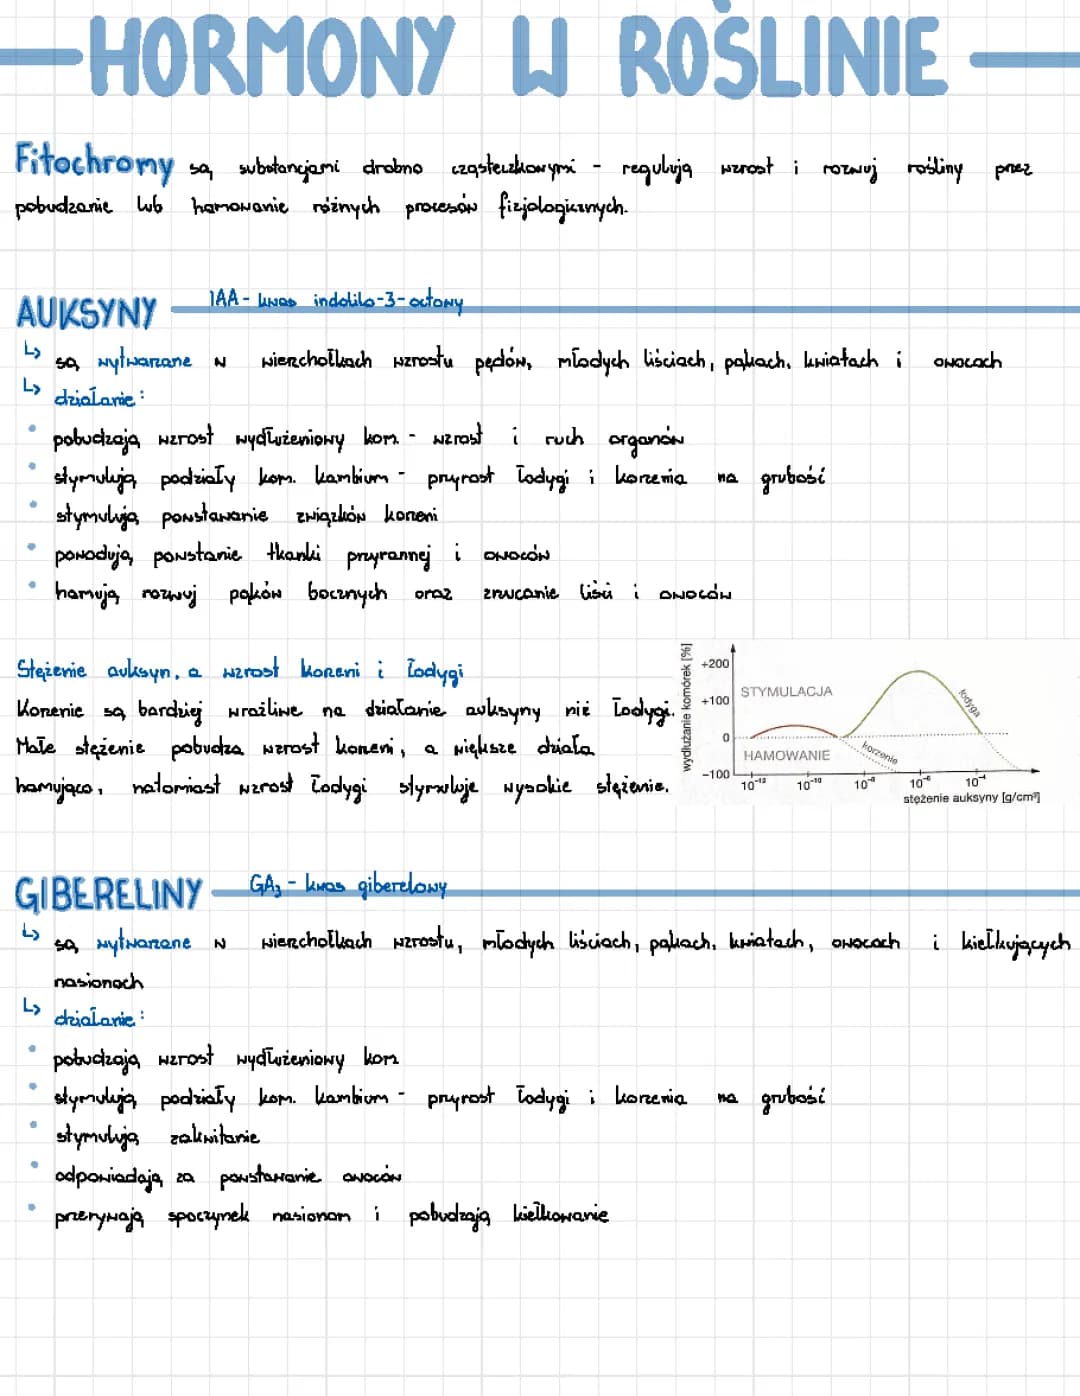 HORMONY W ROŚLINIE
Fitochromy są substancjami drobno cząsteczkowymi - regulują wzrost i rozwój rośliny przez
pobudzanie lub hamowanie różnych procesów fizjologicznych.
AUKSYNY IAA - kwas indolilo-3-octowy
↳ są wytwarzane w wierzchołkach wzrostu pędów, młodych liściach, pąkach, kwiatach i owocach
↳ działanie:
• pobudzają wzrost wydłużeniowy kom. - wzrost i ruch organów
• stymulują podziały kom. kambium - przyrost łodygi i korzenia na grubość
• stymulują powstawanie związków korzeni
• powodują powstanie tkanki przyrannej i owoców
• hamują rozwój pąków bocznych oraz zrzucanie liści i owoców
Stężenie auksyn, a wzrost korzeni i łodygi
Korzenie są bardziej wrażliwe na działanie auksyny niż łodygi.
Małe stężenie pobudza wzrost korzeni, a większe działa
hamująco, natomiast wzrost łodygi stymuluje wysokie stężenie.
wydłużanie komórek [%]
+200
+100
0
-100
STYMULACJA
HAMOWANIE
łodyga
korzenie
10⁻¹² 10⁻¹⁰ 10⁻⁸ 10⁻⁶ 10⁻⁴
stężenie auksyny [g/cm³]
GIBERELINY GA₃ - kwas giberelowy
↳ są wytwarzane w wierzchołkach wzrostu, młodych liściach, pąkach, kwiatach, owocach i kiełkujących
nasionach
↳ działanie:
• pobudzają wzrost wydłużeniowy kom
• stymulują podziały kom. kambium - przyrost łodygi i korzenia na grubość
• stymulują zakwitanie
• odpowiadają za powstawanie owoców
• przerywają spoczynek nasionom i pobudzają kiełkowanie